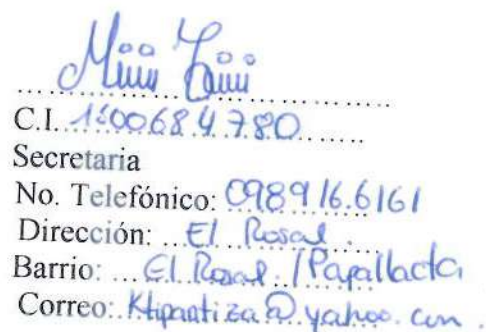 C.I. 1500684780
Secretaria
No. Telefónico: 098916.6161
Dirección: El Rosal.
Barrio: El Rosal / Papallacta
Correo: Ktipantiza@yahoo.com.